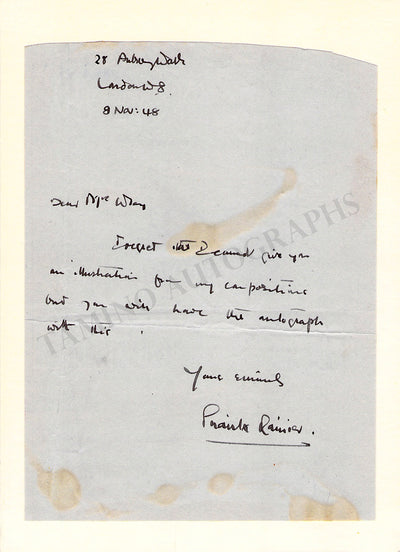 28 Aubrey Walk
London W8.
8 Nov: 48
Dear Mrs Wray
I regret that I cannot give you
an illustration from my compositions
but you will have the autograph
with this.
Yours sincerely
Priaulx Rainier.
TAMINO AUTOGRAPHS